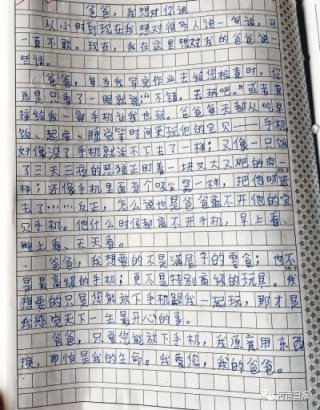 爸爸，我想对你说
从小时到现在我想对很多人说一句话，可
一直不敢。现在，我在这里想对我的爸爸说
些话。
爸爸，每当我写完作业去给您检查时，您
总是只看了一眼就说：“不错，去玩吧。”或者直
接给我一部手机让我也玩。爸爸每天都从吃早
饭、起床、睡觉等时间来玩他的宝贝——手机
好像没了手机就活不下去了一样；又像一只饿
了三天三夜的恶狼正盯着一块又大又肥的肉一
样；还像手机里面有个吸尘器一样，把他吸进
去了……反正，怎么说也是爸爸离不开他的宝
贝手机。他什么时候都离不开手机，早上看、
晚上看、天天看。
爸爸，我想要的不是满屋子的零食；也不
是最高级的手机；更不是特别高级的玩具。我
想要的只是您能放下手机跟我一起玩，那才是
我感觉天下一生最开心的事。
爸爸，只要您能放下手机，我愿意用东西
换，那怕是我的生命。我爱您，我的爸爸。